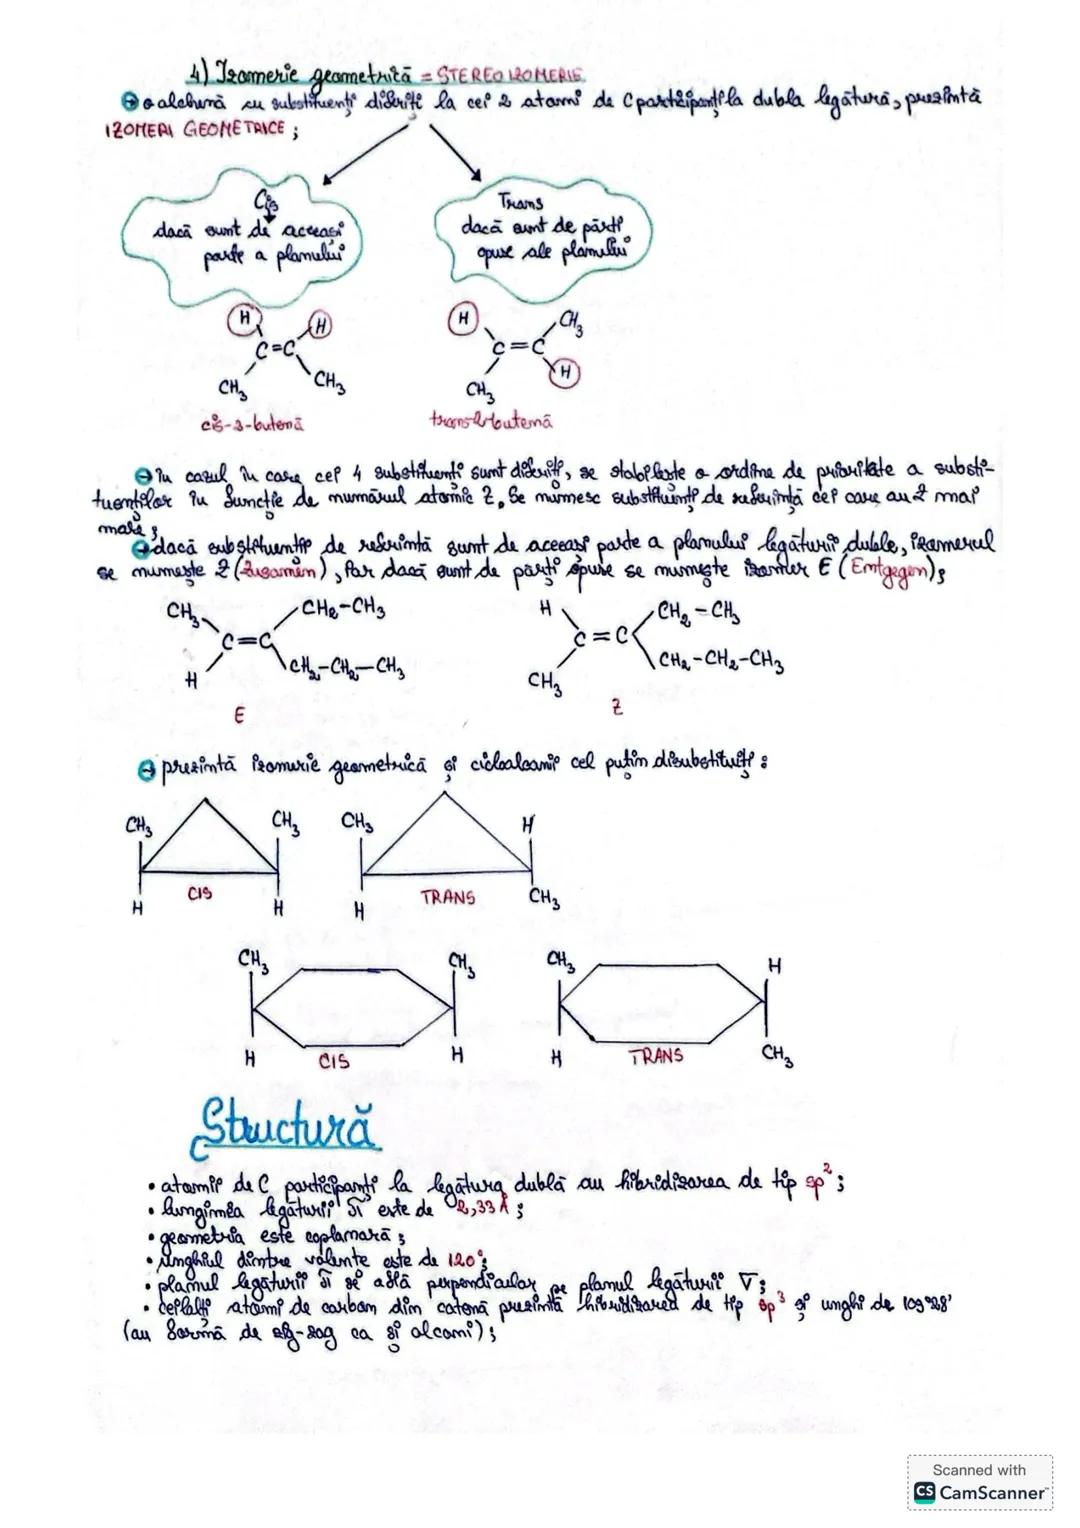 4) Izomerie geometrică = STEREOIZOMERIE
o alchenă cu substituenți diferiți la cei 2 atomi de C participanți la dubla legătură, prezintă
IZOMERI GEOMETRICE ;
Cis
dacă sunt de aceeași
parte a planului
Trans
dacă sunt de părți
opuse ale planului
H H
C=C
CH3 CH3
cis-2-butenă
H CH3
C=C
CH3 H
trans-2-butenă
în cazul în care cei 4 substituenți sunt diferiți, se stabilește o ordine de prioritate a substi-
tuenților în funcție de numărul atomic Z. Se numesc substituenți de referință cei care au Z mai
mare ;
dacă substituenții de referință sunt de aceeași parte a planului legăturii duble, izomerul
se numește Z (Zusamen), iar dacă sunt de părți opuse se numește izomer E (Entgegen);
CH3 CH2-CH3
C=C
H CH2-CH2-CH3
E
H CH2-CH3
C=C
CH3 CH2-CH2-CH3
Z
prezintă izomerie geometrică și cicloalcanii cel puțin disubstituiți :
CH3 CH3
H CIS H
CH3 H
H TRANS CH3
CH3 CH3
H CIS H
CH3 H
H TRANS CH3
Structură
• atomii de C participanți la legătura dublă au hibridizarea de tip sp2 ;
• lungimea legăturii π este de 1,33 Å ;
• geometria este coplanară ;
• unghiul dintre valențe este de 120° ;
• planul legăturii π se află perpendicular pe planul legăturii σ ;
• ceilalți atomi de carbon din catenă prezintă hibridizarea de tip sp3 și unghi de 109°28'
(au formă de zig-zag ca și alcani) ;
Scanned with
CS CamScanner